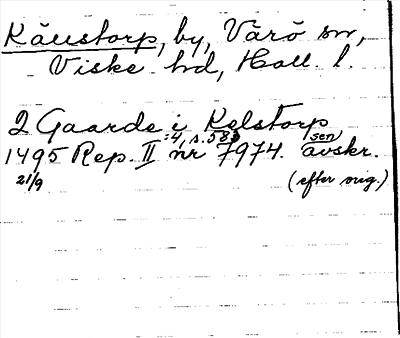 Källstorp, by, Värö sn,
Viske hd, Hall. l.
2 Gaarde i Kelstorp
1495 Rep. II :4, s. 583 nr 7974. sen avskr.
21/9 (efter orig.)